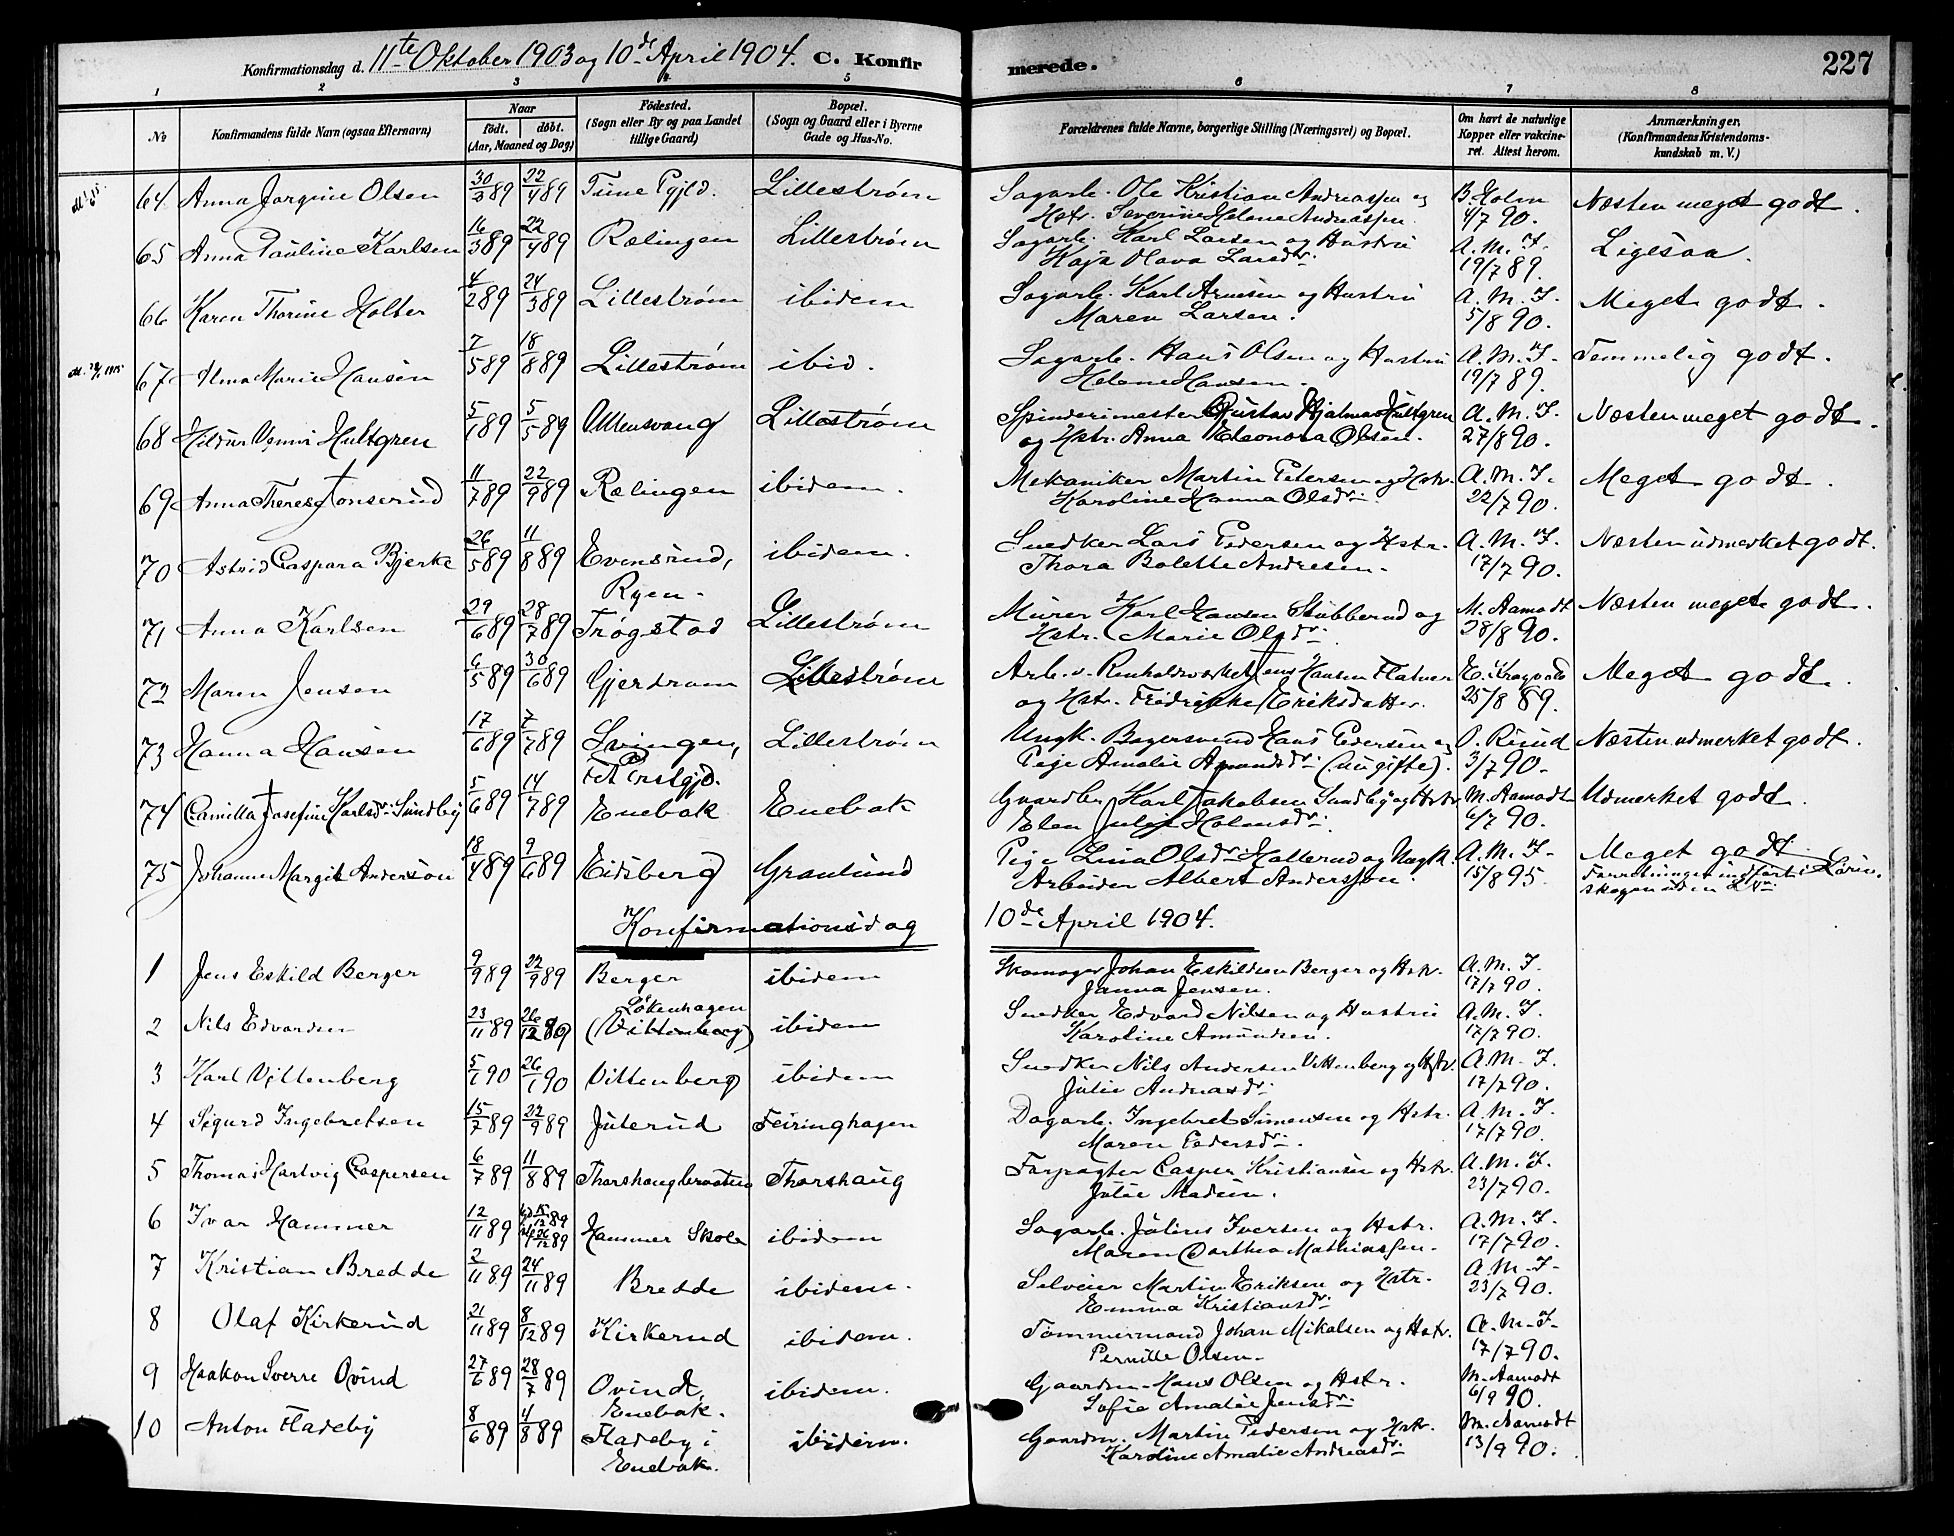 Konfirmationsdag d. 11te Oktober 1903 og 10de April 1904. C. Konfirmerede. 227
1 2 3 4 5 6 7 8
No
Konfirmandens fulde Navn (ogsaa Efternavn)
Naar
født. døbt.
(Aar, Maaned og Dag)
Fødested.
(Sogn eller By og paa Landet
tillige Gaard)
Bopæl.
(Sogn og Gaard eller i Byerne
Gade og Hus-No.
Forældrenes fulde Navne, borgerlige Stilling (Næringsvei) og Bopæl.
Om havt de naturlige
Kopper eller vakcine-
ret. Attest herom.
Anmærkninger,
(Konfirmandens Kristendoms-
kundskab m. V.)
64 Anna Jørgine Olsen 30/3 89 22/4 89 Tune Pgjld. Lillestrøm Sagarb. Ole Kristian Andreassen og B. Holm Næsten meget godt.
Hstr. Severine Helene Andreassen 4/7 90.
65 Anna Pauline Karlsen 16/3 89 22/4 89 Rælingen Lillestrøm Sagarb. Karl Larsen og Hustru A. M. F. Ligesaa.
Kaja Olava Larsdr. 19/7 89.
66 Karen Thorine Holter 4/2 89 24/3 89 Lillestrøm ibidem Sagarb. Karl Arnesen og Hustru A. M. F. Meget godt.
Maren Larsen. 5/8 90.
67 Alma Marie Hansen 7/5 89 18/8 89 Lillestrøm ibid. Sagarb. Hans Olsen og Hustru A. M. F. Temmelig godt.
Helene Hansen. 19/7 89.
68 Hildur Hultgren 5/1 89 5/5 89 Ullensvang Lillestrøm Spinderimester Gustav Hjalmar Hultgren A. M. F. Næsten meget godt.
og Hstr. Anna Eleonora Olsen. 27/8 90.
69 Anna Therese Tonserud 11/7 89 22/9 89 Rælingen ibidem. Mekaniker Martin Petersen og Hstr. A. M. F. Meget godt.
Karoline Hanna Olsdr. 22/7 90.
70 Astrid Caspara Bjerke 26/5 89 11/8 89 Evensrud, ibidem. Snedker Lars Pedersen og Hstr. A. M. F. Næsten udmerket godt.
Ryen. Thora Bolette Andresen. 17/7 90.
71 Anna Karlsen 29/6 89 28/7 89 Trøgstad Lillestrøm Murer Karl Hansen Stubberud og M. Aamodt Næsten meget godt.
Hstr. Marie Olsdr. 28/8 90.
72 Maren Jensen 6/5 89 30/6 89 Gjerdrum Lillestrøm Arb. v. Renholdsverket Jens Hansen Flatner Meget godt.
og Hstr. Fredrikke Eriksdatter. 25/8 89.
73 Hanna Hansen 17/6 89 7/7 89 Svingen, Lillestrøm Ungk. Bagersvend Hans Pedersen og O. Ruud Næsten udmerket godt.
Fet Prstgjd. Pige Amalie Amundsdr. (Nu gifte). 3/7 90.
74 Camilla Josefine Karlsdr. Sundby 5/6 89 14/7 89 Enebak Enebak Gaardbr. Karl Jakobsen Sundby og Hstr. M. Aamodt Udmerket godt.
Elen Julie Holmsdr. 6/7 90.
75 Johanne Margit Andersen 18/4 89 9/6 89 Eidsberg Granlund Pige Lina Olsdr. Hallerud og Ungk. A. M. F. Meget godt
Arbeider Albert Anderssen. 15/8 95. Forretningen indført i Løren-
skogen uden No.
Konfirmationsdag 10de April 1904.
1 Jens Eskild Berger 9/9 89 22/9 89 Berger ibidem Skomager Johan Eskildsen Berger og Hstr. A. M. F.
Janna Jensen. 17/7 90.
2 Nils Edvardsen 23/11 89 26/12 89 Løkenhagen
(Vittenberg) ibidem Snedker Edvard Nilsen og Hustru A. M. F.
Karoline Amundsen. 17/7 90.
3 Karl Vittenberg 5/1 90 26/1 90 Vittenberg ibidem Snedker Nils Andersen Vittenberg og Hstr. A. M. F.
Julie Andreasdr. 17/7 90.
4 Sigurd Ingebretsen 15/7 89 22/9 89 Juterud Feiringhagen Dagarb. Ingebret Simensen og Hstr. A. M. F.
Maren Pedersdr. 17/7 90.
5 Thomas Hartvig Caspersen 6/7 89 11/8 89 Thorshaugbraaten Thorshaug Forpagter Casper Kristiansen og Hstr. A. M. F.
Julie Madsen. 23/7 90.
6 Ivar Hammer 12/11 89 15/12 89 26/12 89 Hammer Skole ibidem Sagarb. Julius Iversen og Hstr. A. M. F.
Maren Dorthea Mathiassen. 17/7 90.
7 Kristian Bredde 2/11 89 24/11 89 Bredde ibidem. Selveier Martin Eriksen og Hstr. A. M. F.
Emma Kristiansdr. 23/7 90.
8 Olaf Kirkerud 21/11 89 8/12 89 Kirkerud ibidem. Tømmermand Johan Mikalsen og Hstr. A. M. F.
Pernille Olsen. 17/7 90.
9 Haakon Sverre Ovind 27/6 89 28/7 89 Ovind, ibidem. Gaardm. Hans Olsen og Hstr. M. Aamodt
Enebak. Sofie Amalie Jensdr. 6/9 90.
10 Anton Fladeby 8/6 89 4/8 89 Fladeby i ibidem. Gaardm. Martin Pedersen og Hstr. M. Aamodt
Enebak. Karoline Amalie Andreasdr. 13/9 90.